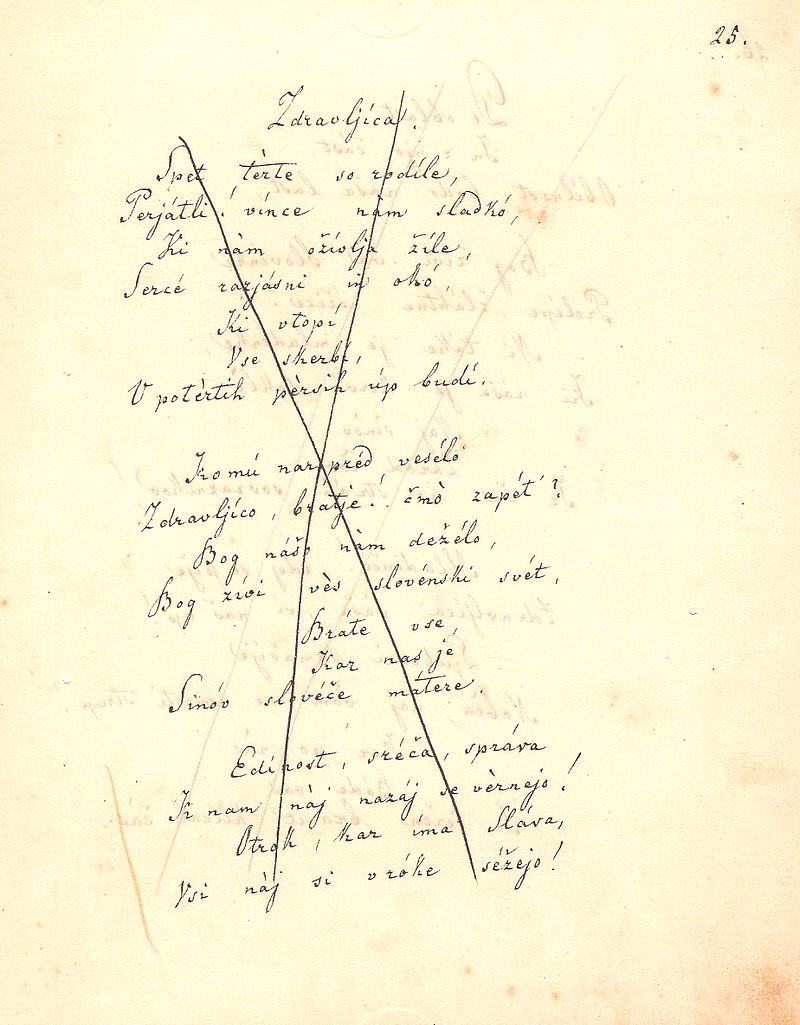 25.
Zdravljíca.
Spet tèrte so rodíle,
Perjátli! vínce nàm sladkó,
Ki nàm ožívlja žíle,
Sercé razjásni in okó,
Ki vtopí
Vse skerbí,
V potèrtih pèrsih úp budí.
Komú nar préd vesélo
Zdravljíco, brátje! čmò zapét'?
Bog nášo nàm deželo,
Bog žívi vès slovénski svét,
Bráte vse,
Kar nas je
Sinóv slovéče mátere.
Edínost, sréča, správa
K nam nàj nazáj se vèrnejo!
Otrok, kar íma Sláva,
Vsi nàj si v róke séžejo!